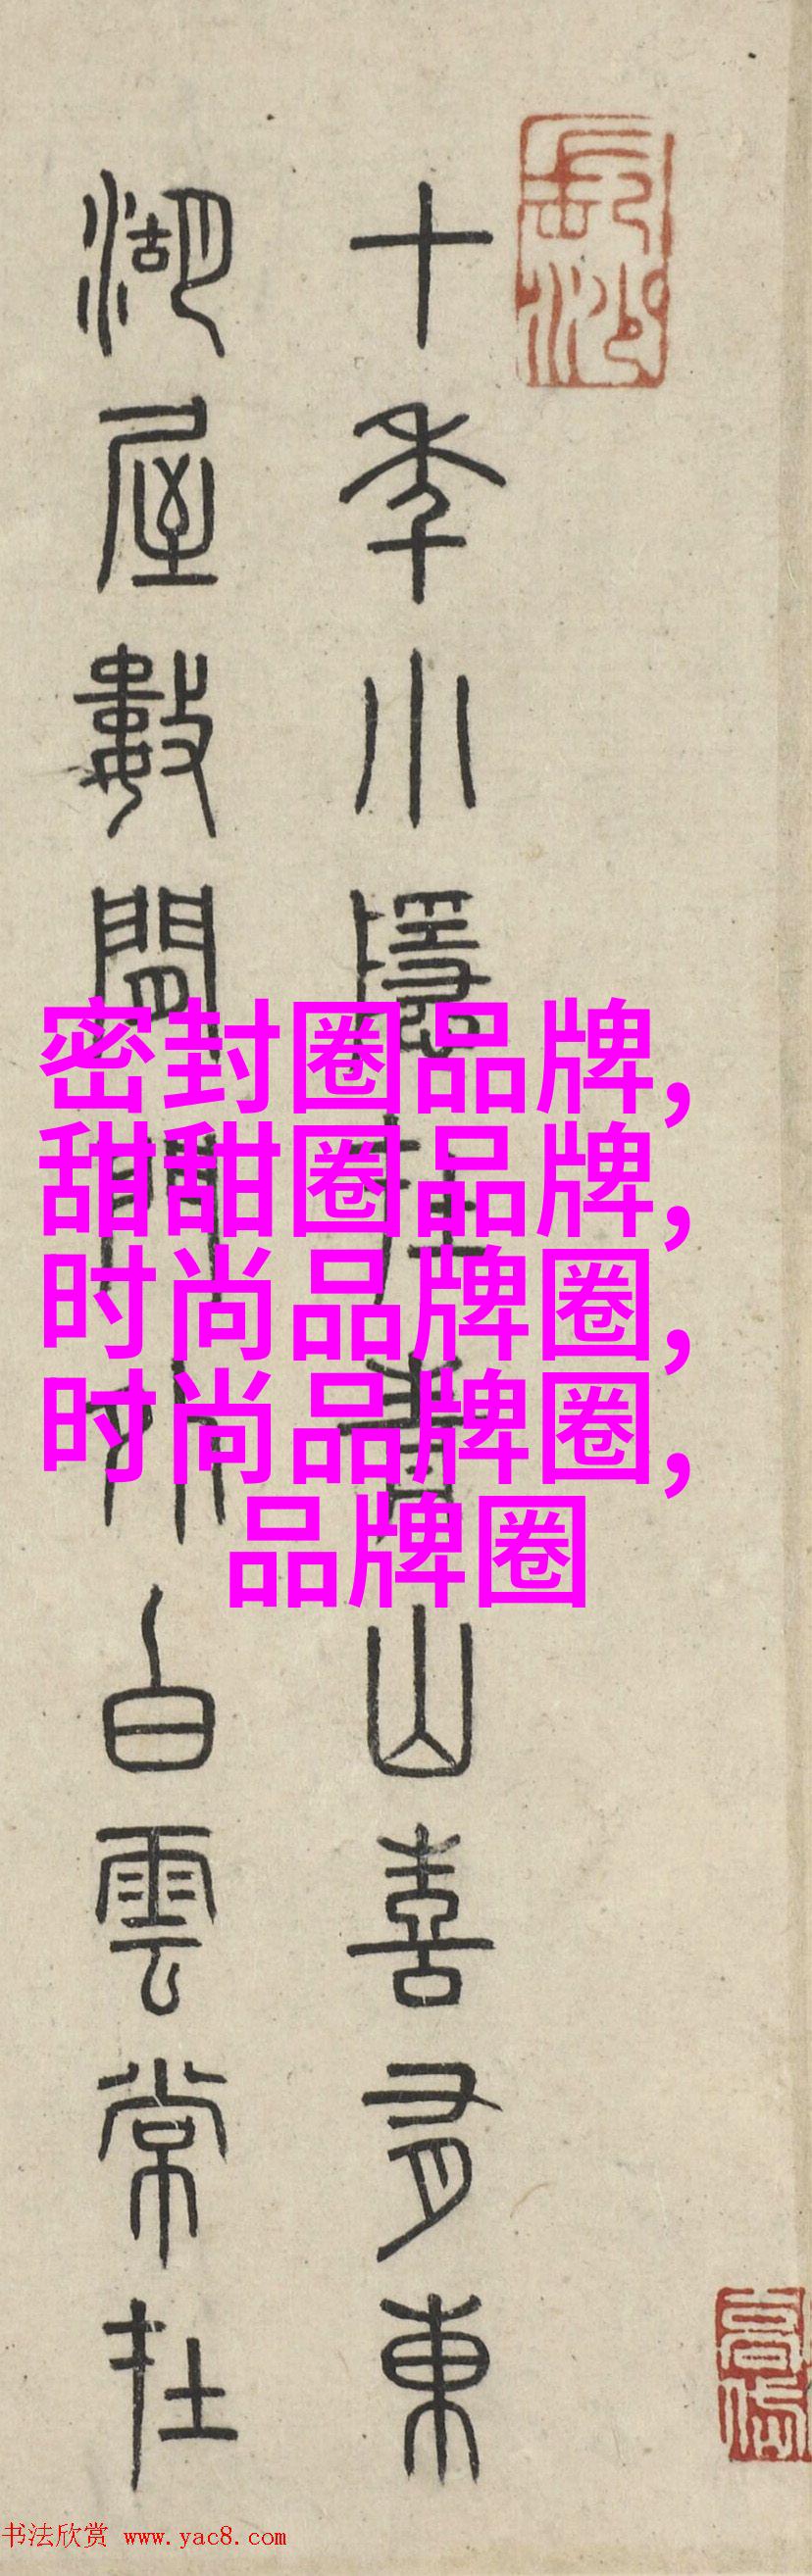 十年小隱在青山喜有東
湖屋數閒門外白雲常在
密封圈品牌,
甜甜圈品牌,
时尚品牌圈,
时尚品牌圈,
品牌圈
书法欣赏 www.yac8.com